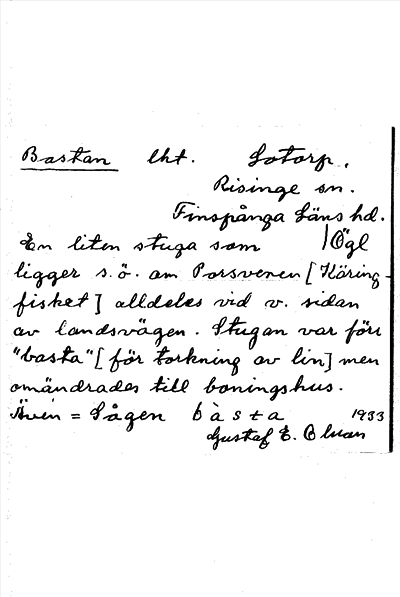 Bastan lht. Sotorp,
Risinge sn.
Finspånga Läns hd.
En liten stuga som | Ögl
ligger s.ö. om Porsvenen [Käring-
fisket] alldeles vid v. sidan
av landsvägen. Stugan var förr
"basta" [för torkning av lin] men
omändrades till boningshus.
Även = Sågen bàsta 1933
Gustaf E.